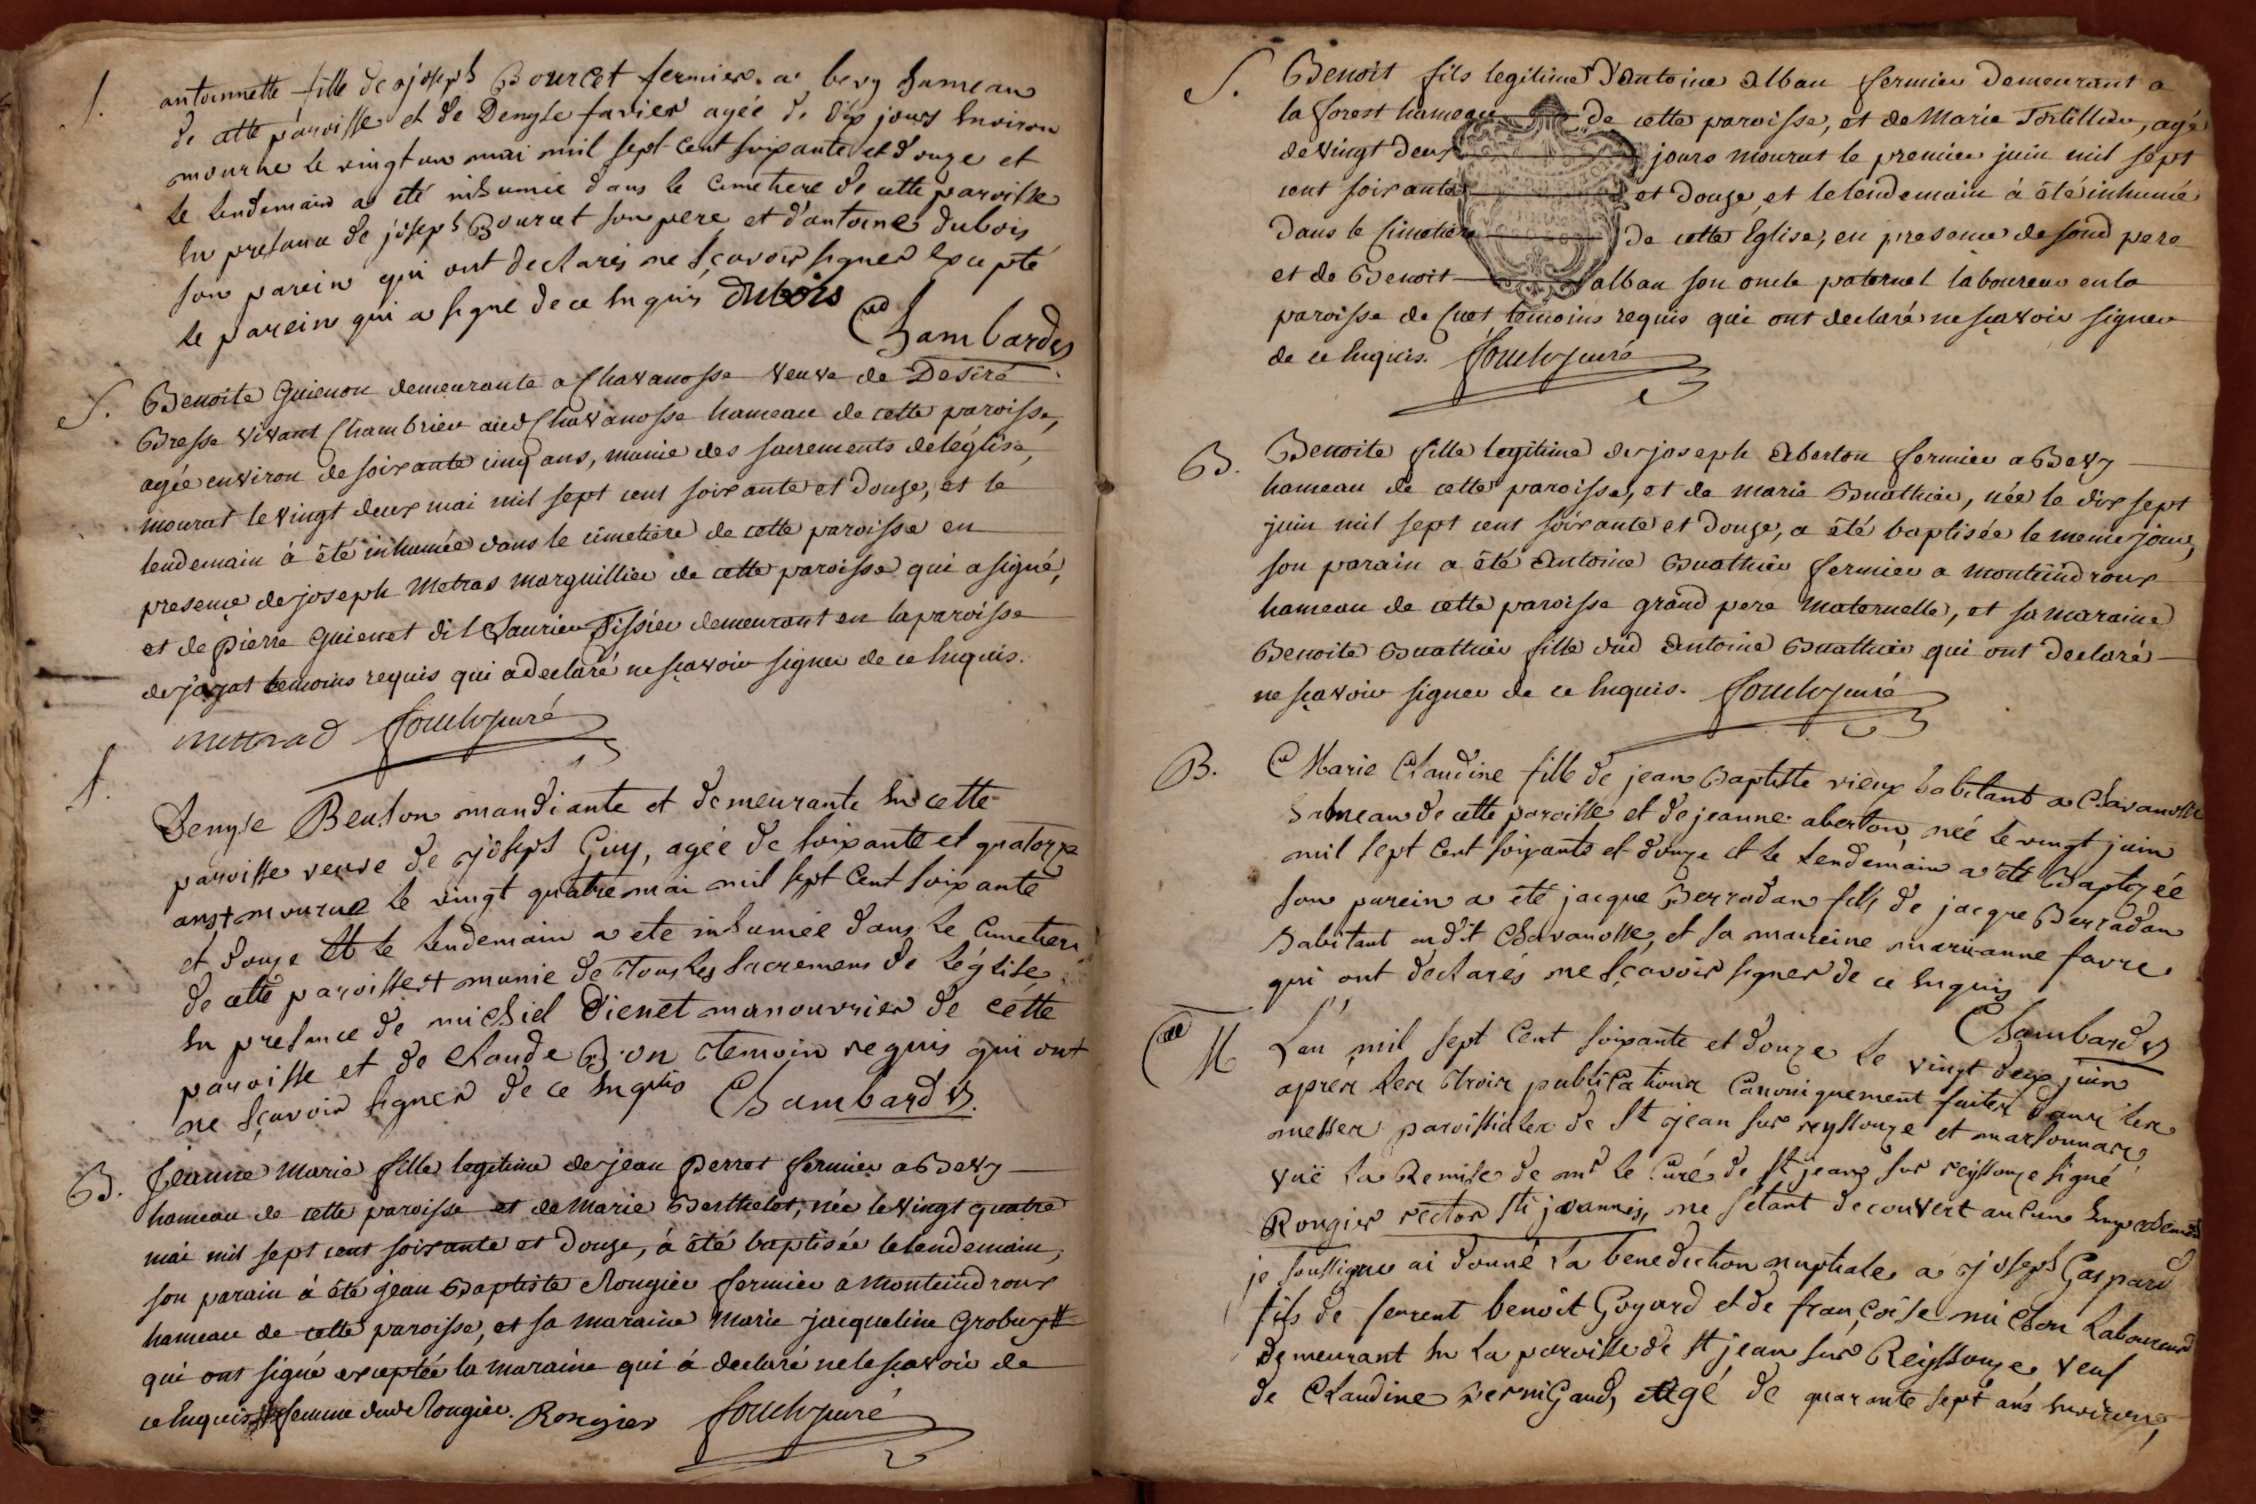 S.
antoinnette fille de joseph Bourcet fermier a bevy hameau
de cette paroisse et de Denyse favier agée de dix jours environ
mourue le vingt un mai mil sept cent soixante et douze et
le lendemain a eté inhumée dans le cimetiere de cette paroisse
en presence de joseph Bourcet son pere et d'antoine dubois
son parein qui ont declarés ne sçavoir signer excepté
le parein qui a signé de ce enquis Dubois
Chambard
S.
Benoite Guienon demeurante a Chavanosse veuve de Desiré
Bresse vivant Chambrier aud Chavanosse hameau de cette paroisse,
agée environ de soixante cinq ans, munie des sacrements de léglise,
mourut le vingt deux mai mil sept cent soixante et douze, et le
lendemain à été inhumée dans le cimetiere de cette paroisse en
presence de joseph Metras marguillier de cette paroisse qui a signé,
et de pierre Guienet dit tissier demeurant en la paroisse
de jayat temoins requis qui a declaré ne sçavoir signer de ce enquis.
mettrad
S.
Denyse Beuson mandiante et demeurante en cette
paroisse veuve de joseph Guy, agée de soixante et quatorze
ans + mourue le vingt quatre mai mil sept cent soixante
et douze et le lendemain a eté inhumée dans le cimetiere
de cette paroisse + munie de tous les sacremens de l'église
en presence de michel Dienet manouvrier de cette
paroisse et de claude Bon temoin requis qui ont
ne sçavoir signer de ce enquis Chambard
B.
Jeanne Marie fille legitime de jean perret fermier a Bevy
hameau de cette paroisse et de Marie Berthelet, née le vingt quatre
mai mil sept cent soixante et douze, à été baptisée le lendemain,
son parain à été jean Baptiste Rougier fermier a Monteindroux
hameau de cette paroisse, et sa maraine Marie jacqueline Grobuy #
qui ont signé exceptée la maraine qui à declaré ne le sçavoir de
ce enquis # femme dud Rougier. Rougier
S.
Benoit fils legitime d'Antoine Alban fermier demeurant a
la forest hameau de cette paroisse, et de Marie Tortillier, agé
de vingt deux jours mourut le premier juin mil sept
cent soixante et douze, et le lendemain à été inhumé
dans le Cimetiere de cette église, en presence de sond pere
et de Benoit alban son oncle paternel laboureur en la
paroisse de Cuet temoins requis qui ont declaré ne sçavoir signer
de ce enquis.
B.
Benoite fille legitime de joseph Aberton fermier a Bevy
hameau de cette paroisse, et de marie Buathier, née le dix sept
juin mil sept cent soixante et douze, a été baptisée le meme jour,
son parain a été Antoine Buathier fermier a Monteindroux
hameau de cette paroisse grand pere maternelle, et sa maraine
Benoite Buathier fille dud Antoine Buathier qui ont declaré
ne sçavoir signer de ce enquis.
B.
Marie Claudine fille de jean Baptiste vieux habitant a Chavanosse
hameau de cette paroisse et de jeanne aberton, née le vingt juin
mil sept cent soixante et douze et le lendemain a été Baptizée
son parein a été jacque Berradan fils de jacque Berradan
habitant audit Chavanosse, et sa mareine marie-anne favre
qui ont declarés ne sçavoir signer de ce enquis
Chambard
M
L'an mil sept cent soixante et douze le vingt deux juin
après les trois publications canoniquement faites dans les
messes paroissiales de St jean sur reyssouze et marsonnas
vuë la Remise de mr le Curé de St jean sur reyssouze signé
Rougier rector sti joannis, ne s'étant decouvert aucune
je soussigné ai donné la benediction nuptiale a joseph Gaspard
fils de Benoit Goyard et de françoise michon Laboureur
demeurant en la paroisse de St jean sur Reyssouze veuf
de Claudine perniGaud, agé de quarante sept ans environ,